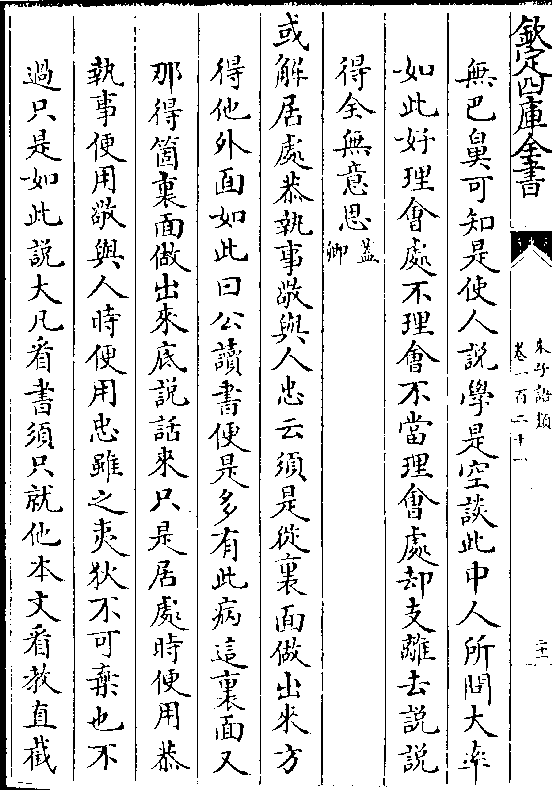 欽定四庫全書
朱子語類
卷一百二十一
二十一
無巴臭可知是使人說學是空談此中人所問大率
如此好理會處不理會不當理會處却支離去說說
得全無意思蓋卿
或解居處恭執事敬與人忠云須是從裏面做出來方
得他外面如此曰公讀書便是多有此病這裏面又
那得箇裏面做出來底說話來只是居處時便用恭
執事便用敬與人時便用忠雖之夷狄不可棄也不
過只是如此說大凡看書須只就他本文看教直截